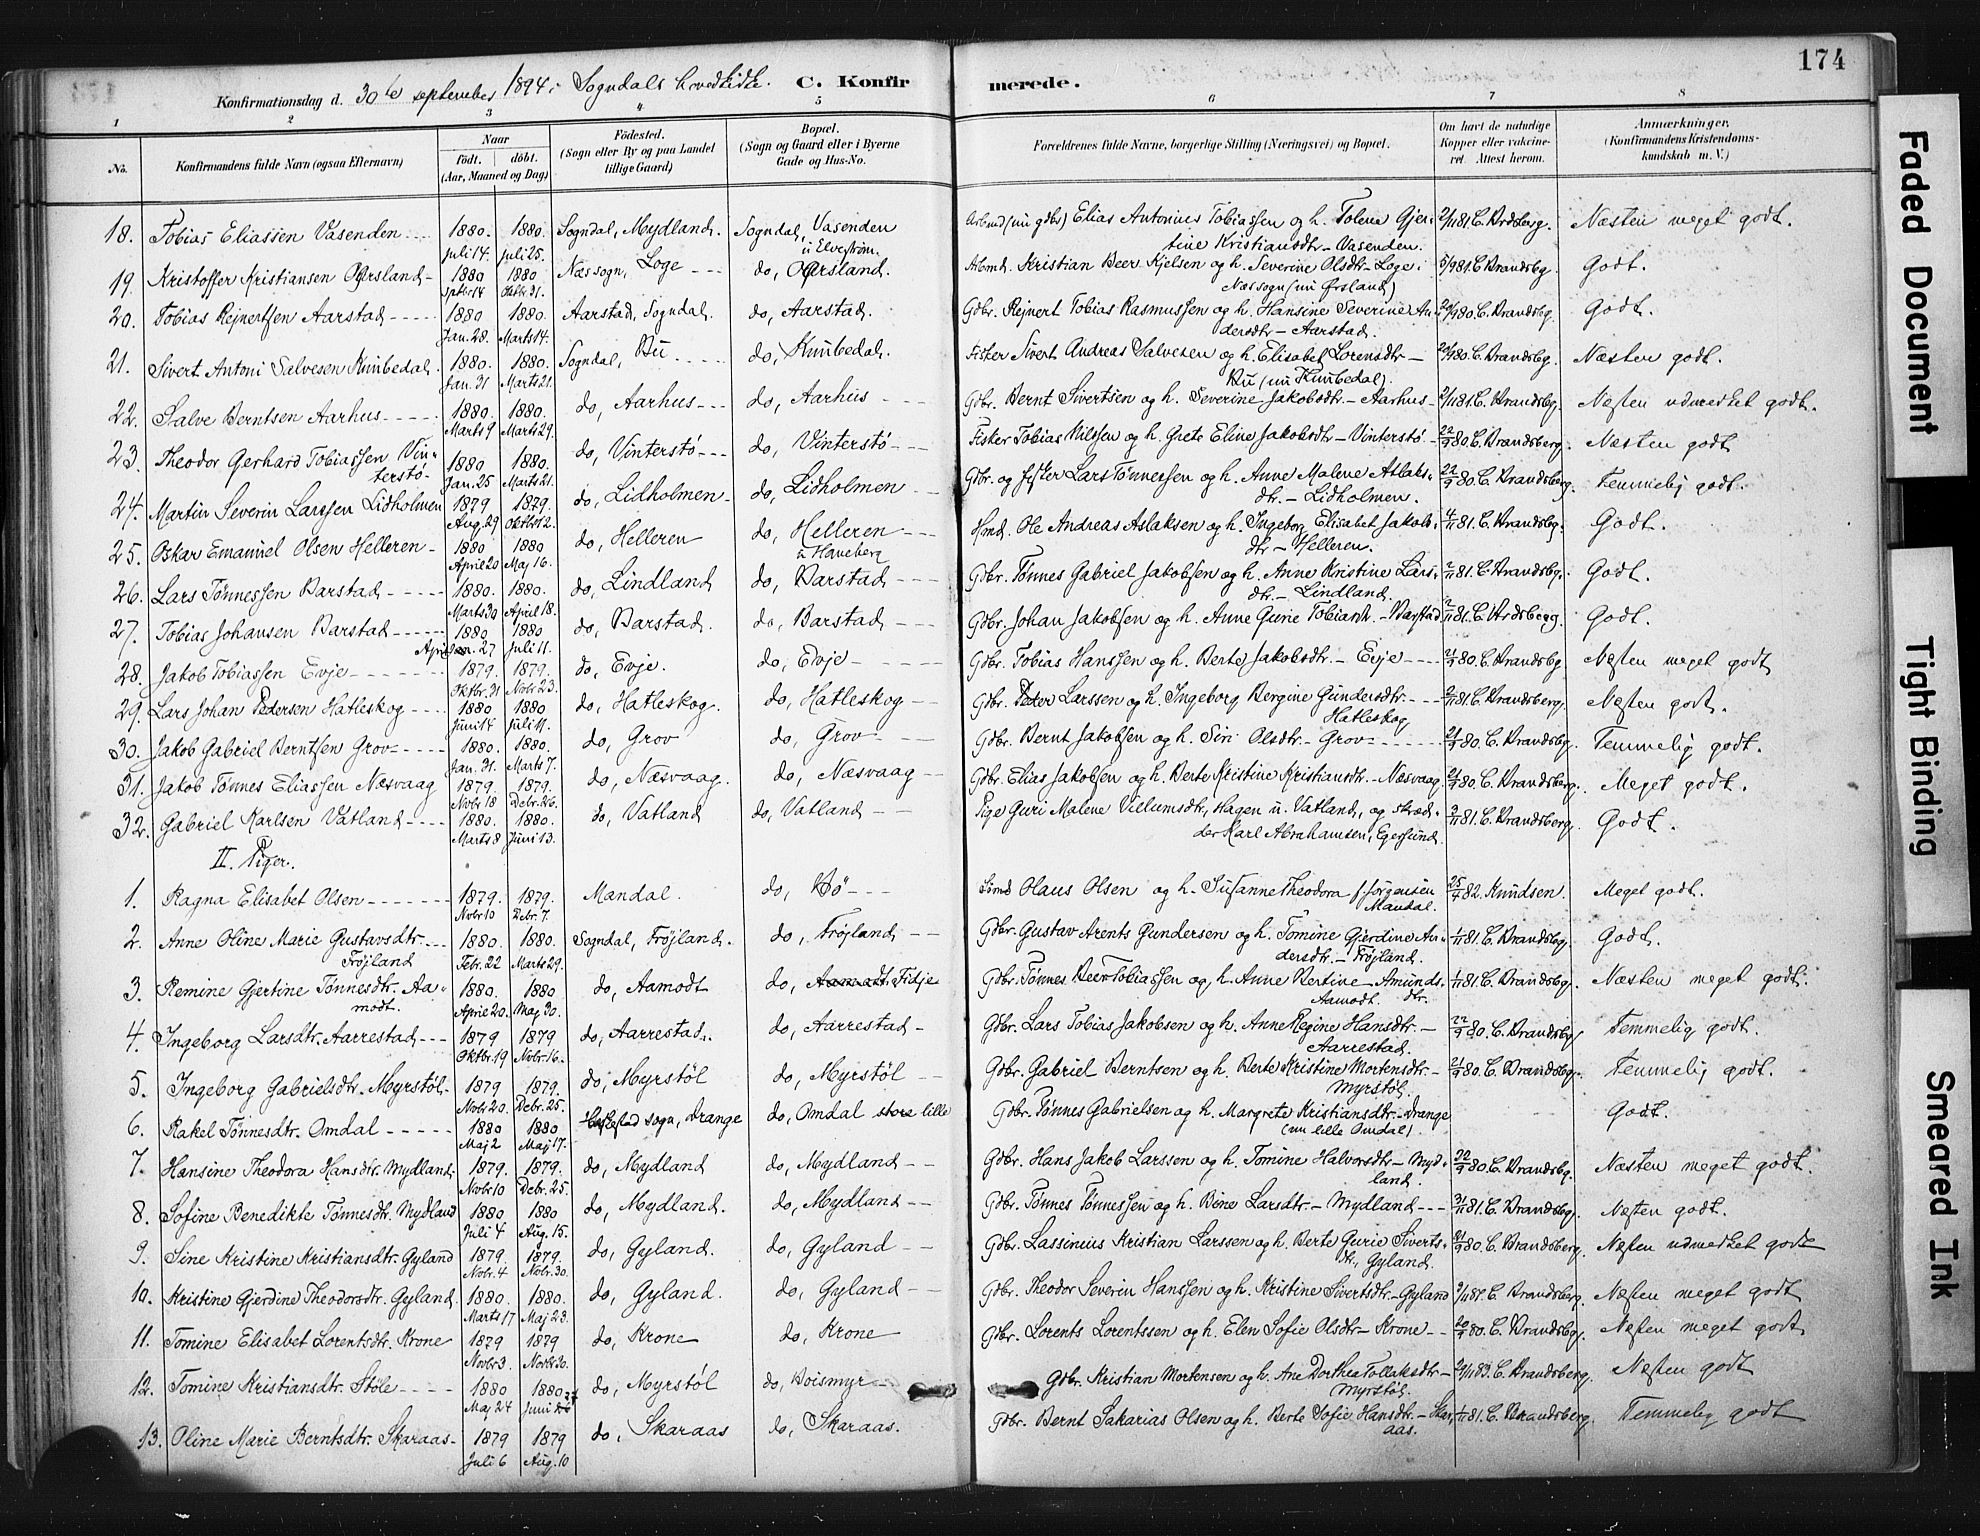 174
Konfirmationsdag d. 30te september 1894 i Sogndals hovedkirke. C. Konfirmerede.
1 2 3 4 5 6 7 8
No.
Konfirmandens fulde Navn (ogsaa Efternavn)
Naar
födt. döbt.
(Aar, Maaned og Dag)
Födested.
(Sogn eller By og paa Landet
tillige Gaard)
Bopæl.
(Sogn og Gaard eller i Byerne
Gade og Hus-No.
Forældrenes fulde Navne, borgerlige Stilling (Næringsvei) og Bopæl.
Om havt de naturlige
Kopper eller vakcine-
ret. Attest herom.
Anmærkninger.
(Konfirmandens Kristendoms-
kundskab m. V.)
18. Tobias Eliassen Vasenden 1880. 1880. Sogndal, Mydland. Sogndal, Vasenden Arbmd (nu gdbr) Elias Antonius Tobiassen og h. Tolene Gjer- 2/11 81. C. Brdsberg. Næsten meget godt.
Juli 14. Juli 25. u Elvestrøm. tine Kristiansdtr - Vasenden.
19. Kristoffer Kristiansen Ørsland 1880 1880. Næssogn, Loge do, Ørsland. Arbmd. Kristian Beer Kjelsen og h. Severine Olsdtr - Loge i 5/9 81. C. Brandsbg. Godt.
Sptbr 14 Oktbr. 31. Næssogn (nu Ørsland)
20. Tobias Rejnertsen Aarstad 1880 1880. Aarstad, Sogndal. do, Aarstad. Gdbr. Rejnert Tobias Rasmussen og h. Hansine Severine An- 20/9 80. C. Brandsbg. Godt.
Jan. 28. Marts 14. dersdtr - Aarstad.
21. Sivert Antoni Salvesen Knubedal 1880. 1880. Sogndal, Bu do, Knubedal. Fisker Sivert Andreas Salvesen og h. Elisabet Lorensdtr 20/9 80. C. Brandsbg. Næsten godt.
Jan. 31 Marts 21. Bu (nu Knubedal).
22. Salve Berntsen Aarhus 1880. 1880. do, Aarhus do, Aarhus Gdbr. Bernt Sivertsen og h. Severine Jakobsdtr - Aarhus 2/11 81. C. Brandsbg. Næsten udmerket godt.
Marts 9 Marts 29.
23. Theodor Gerhard Tobiassen Vin- 1880 1880. do, Vinterstø do, Vinterstø Fisker Tobias Nilssen og h. Grete Eline Jakobsdtr - Vinterstø 22/9 80. C. Brandsberg. Næsten godt
terstø Jan. 25 Marts 21.
24. Martin Severin Larssen Lidholmen 1879 1879. do, Lidholmen do, Lidholmen Gdbr. og Fisker Lars Tønnessen og h. Anne Malene Aslaks- 22/9 80. C. Brandsberg. Temmelig godt.
Aug. 29 Oktbr 12. dtr. - Lidholmen.
25. Oskar Emanuel Olsen Helleren 1880 1880 do, Helleren do, Helleren Hmd. Ole Andreas Aslaksen og h. Ingeborg Elisabet Jakobs- 4/11 81. C. Brandsbg. Godt.
April 20 Maj 16. u Haneberg dtr - Helleren.
26. Lars Tønnessen Barstad 1880. 1880. do, Lindland do, Barstad Gdbr. Tønnes Gabriel Jakobsen og h. Anne Kristine Lars- 2/11 81. C. Brandsbg. Godt.
Marts 30 April 18. dtr. - Lindland.
27. Tobias Johansen Barstad 1880 1880 do, Barstad. do, Barstad Gdbr. Johan Jakobsen og h. Anne Gurie Tobiasdr. - Barstad 2/11 81. C. Brdsberg. Godt.
April 27 Juli 11.
28. Jakob Tobiassen Evje 1879. 1879. do, Evje. do, Evje Gdbr. Tobias Hanssen og h. Berte Jakobsdtr. - Evje 21/9 80. C. Brandsbg Næsten meget godt
Oktbr. 31 Nobr 23.
29. Lars Johan Pedersen Hatleskog 1880 1880 do, Hatleskog. do, Hatleskog Gdbr. Peder Larssen og h. Ingeborg Bergine Gundersdtr. 2/11 81. C. Brandsberg. Næsten godt.
Juni 14 Juli 11. Hatleskog
30. Jakob Gabriel Berntsen Grov 1880. 1880. do, Grov do, Grov Gdbr. Bernt Jakobsen og h. Siri Olsdtr. - Grov 21/9 80. C. Brandsbg. Temmelig godt.
Jan. 31. Marts 7.
31. Jakob Tønnes Eliassen Næsvaag 1879. 1879. do, Næsvaag. do, Næsvaag Gdbr. Elias Jakobsen og h. Berte Kristine Kristiansdtr. - Næsvaag 21/9 80. C. Brandsberg. Meget godt.
Nobr 18 Debr. 26.
32. Gabriel Karlsen Vatland 1880. 1880. do, Vatland do, Vatland Pige Guri Malene Villumsdtr, Hagen u. Vatland, og skræd- 2/11 81. C. Brandsberg. Godt.
Marts 8 Juni 13. der Karl Abrahamsen, Egersund.
II. Piger.
1. Ragna Elisabet Olsen 1879. 1879. Mandal. do, Bø Olaus Olsen og h. Susanne Theodora f. Jørgensen 25/4 82. Knudsen. Meget godt.
Nobr 10 Debr. 7. Mandal.
2. Anne Oline Marie Gustavsdtr. 1880. 1880. Sogndal, Frøjland. do, Frøjland Gdbr. Gustav Arents Gundersen og h. Tomine Gjerdine An- 1/11 81. C. Brandsbg. Godt.
Frøjland Febr. 22 Marts 29. dersdtr. - Frøjland.
3. Remine Gjertine Tønnesdtr. Aa- 1880. 1880 do, Aamodt do, Aamodt. Fidje Gdbr. Tønnes Beer Tobiassen og h. Anne Bertine Amunds- 1/11 81. C. Brandsbg. Næsten meget godt.
modt. April 20. Maj 30. Aamodt. dtr.
4. Ingeborg Larsdtr. Aarrestad 1879 1879 do, Aarrestad. do, Aarrestad Gdbr. Lars Tobias Jakobsen og h. Anne Regine Hansdtr. 22/9 80. C. Brandsbg. Temmelig godt.
Oktbr. 19 Nobr. 16. Aarrestad.
5. Ingeborg Gabrielsdtr. Myrstøl 1879 1879. do, Myrstøl do, Myrstøl Gdbr. Gabriel Berntsen og h. Berte Kristine Mortensdtr. 21/9 80. C. Brandsbg. Temmelig godt.
Nobr 20. Debr. 25. Myrstøl.
6. Rakel Tønnesdtr. Omdal 1880 1880 sogn, Drange do, Omdal store lille Gdbr. Tønnes Gabrielsen og h. Margrete Kristiansdtr. - Drange Godt.
Maj 2 Maj 17. (nu lille Omdal).
7. Hansine Theodora Hansdtr. Mydland 1879. 1879. do, Mydland do, Mydland Gdbr. Hans Jakob Larssen og h. Tomine Halvorsdtr - Myd- 22/9 80. C. Brandsbg. Næsten meget godt.
Nobr 10 Debr. 25. land.
8. Sofine Benedikte Tønnesdtr. Mydland 1880 1880 do, Mydland. do, Mydland Gdbr. Tønnes Tønnessen og h. Bine Larsdtr. - Mydland 81. C. Brandsbg. Næsten godt.
Juli 4 Aug. 15.
9. Sine Kristine Kristiansdtr. Gyland 1879. 1879. do, Gyland. do, Gyland Gdbr. Lassinius Kristian Larssen og h. Berte Gurie Siverts- 21/9 80. C. Brandsbg. Næsten udmerket godt
Nobr. 4 Nobr. 30. dtr., Gyland.
10. Kristine Gjerdine Theodorsdtr. Gyland. 1880. 1880. do, Gyland. do, Gyland Gdbr. Theodor Severin Hanssen og h. Kristine Sivertsdtr. - Gyland C. Brandsberg. Næsten meget godt
Marts 17 Maj 23.
11. Tomine Elisabet Lorentsdtr. Krone 1879 1879 do, Krone do, Krone Gdbr. Lorents Lorentssen og h. Elen Sofie Olsdtr - Krone 20/9 80. C. Brandsbg. Næsten meget godt
Novbr 3. Novbr 30.
12. Tomine Kristiansdtr. Støle 1880 1880 do, Myrstøl do, Boismyr Gdbr. Kristian Mortensen og h. Ane Dorthea Tollaksdtr 29/11 83. C. Brandsbg. Næsten godt
Maj 24 Juni 27 Myrstøl.
13. Oline Marie Berntsdtr. Skaraas 1879 1879 do, Skaraas do, Skaraas. Gdbr. Bernt Sakarias Olsen og h. Berte Sofie Hansdtr. - Skar- 1/11 81. C. Brandsberg. Temmelig godt
Juli 6 Aug. 10 aas.
Faded Document
Tight Binding
Smeared Ink